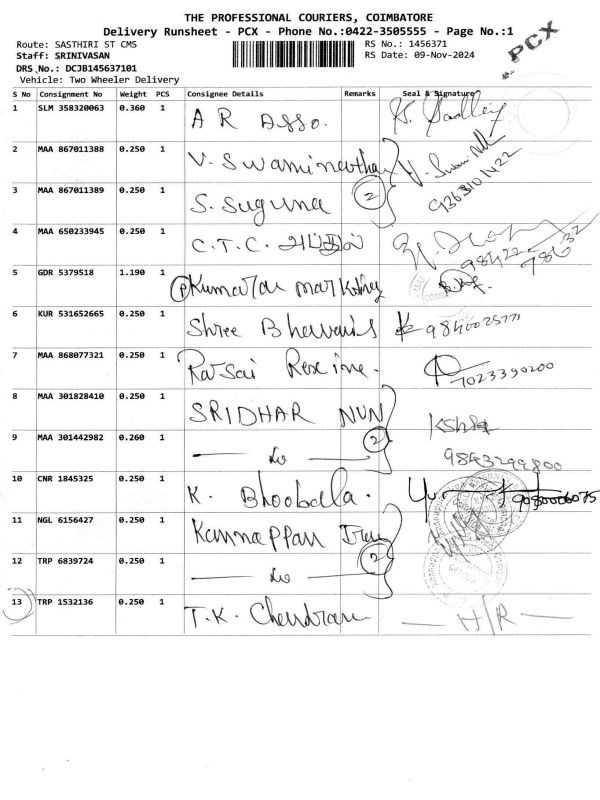 THE PROFESSIONAL COURIERS, COIMBATORE
Delivery Runsheet - PCX - Phone No.:0422-3505555 - Page No.:1
PCX
Route: SASTHIRI ST CMS
RS No.: 1456371
Staff: SRINIVASAN
RS Date: 09-Nov-2024
DRS No.: DCJB145637101
Vehicle: Two Wheeler Delivery
S No Consignment No Weight PCS Consignee Details Remarks Seal & Signature
1 SLM 358320063 0.360 1 A R Asso.
2 MAA 867011388 0.250 1 V. Swaminatha
9363101422
3 MAA 867011389 0.250 1 S. Suguna 2
4 MAA 650233945 0.250 1 C.T.C.
98422 78632
5 GDR 5379518 1.190 1 P Kumaran
6 KUR 531652665 0.250 1 Shree
7 MAA 868077321 0.250 1
7023390200
8 MAA 301828410 0.250 1 SRIDHAR NUN
9 MAA 301442982 0.260 1 2
9843299800
10 CNR 1845325 0.250 1 K. Bhoobala. 9080006075
11 NGL 6156427 0.250 1 Kannappan
12 TRP 6839724 0.250 1 2
13 TRP 1532136 0.250 1 T.K. Chendran H/R